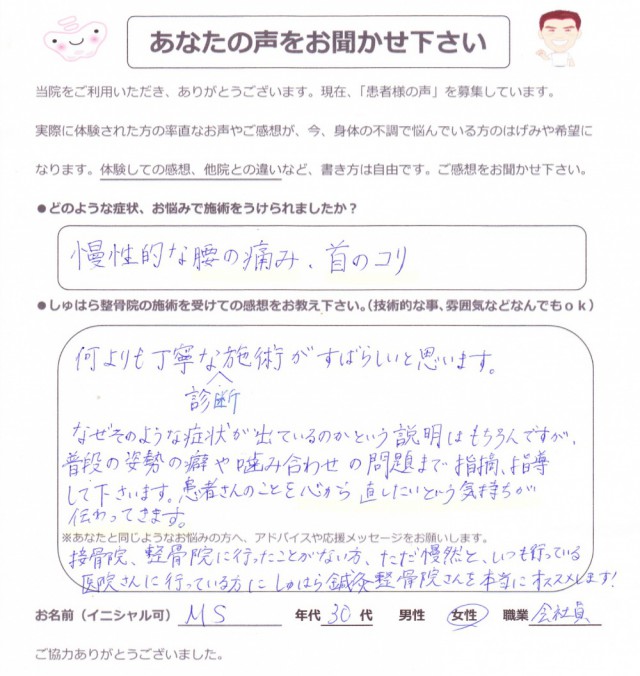 あなたの声をお聞かせ下さい
当院をご利用いただき、ありがとうございます。現在、「患者様の声」を募集しています。
実際に体験された方の率直なお声やご感想が、今、身体の不調で悩んでいる方のはげみや希望に
なります。体験しての感想、他院との違いなど、書き方は自由です。ご感想をお聞かせ下さい。
●どのような症状、お悩みで施術をうけられましたか？
慢性的な腰の痛み、首のコリ
●しゅはら整骨院の施術を受けての感想をお教え下さい。（技術的な事、雰囲気などなんでもｏｋ）
何よりも丁寧な施術がすばらしいと思います。
診断
なぜそのような症状が出ているのかという説明はもちろんですが、
普段の姿勢の癖や噛み合わせの問題まで指摘、指導
して下さいます。患者さんのことを心から直したいという気持ちが
伝わってきます。
※あなたと同じようなお悩みの方へ、アドバイスや応援メッセージをお願いします。
接骨院、整骨院に行ったことがない方、ただ漫然と、いつも行っている
医院さんに行っている方に しゅはら鍼灸整骨院さんを本当にオススメします!
お名前（イニシャル可） MS 年代 30 代 男性 女性 職業 会社員
ご協力ありがとうございました。